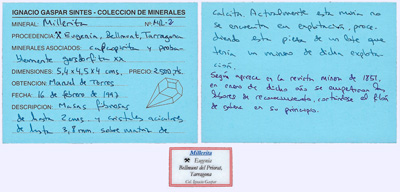 IGNACIO GASPAR SINTES - COLECCION DE MINERALES
MINERAL: Millerita Nº: ML-2
PROCEDENCIA: ⚒ Eugenia, Bellmunt, Tarragona
MINERALES ASOCIADOS: calcopirita y proba-
blemente gersdorfita xx
DIMENSIONES: 5,4x4,5x4 cms. PRECIO: 2.500 pts.
OBTENCION: Manuel de Torres
FECHA: 16 de febrero de 1997
DESCRIPCION: Masas fibrosas
de hasta 2 cms. y cristales aciculares
de hasta 3,8 mm. sobre matriz de
calcita. Actualmente esta mina no
se encuentra en explotación, proce-
diendo esta pieza de un lote que
tenía un minero de dicha explot-
ación.
Según aparece en la revista minera de 1851,
en enero de dicho año se empezaron las
labores de reconocimiento, cortándose el filón
de galena en su principio.
Millerita
⚒ Eugenia
Bellmunt del Priorat,
Tarragona
Col. Ignacio Gaspar